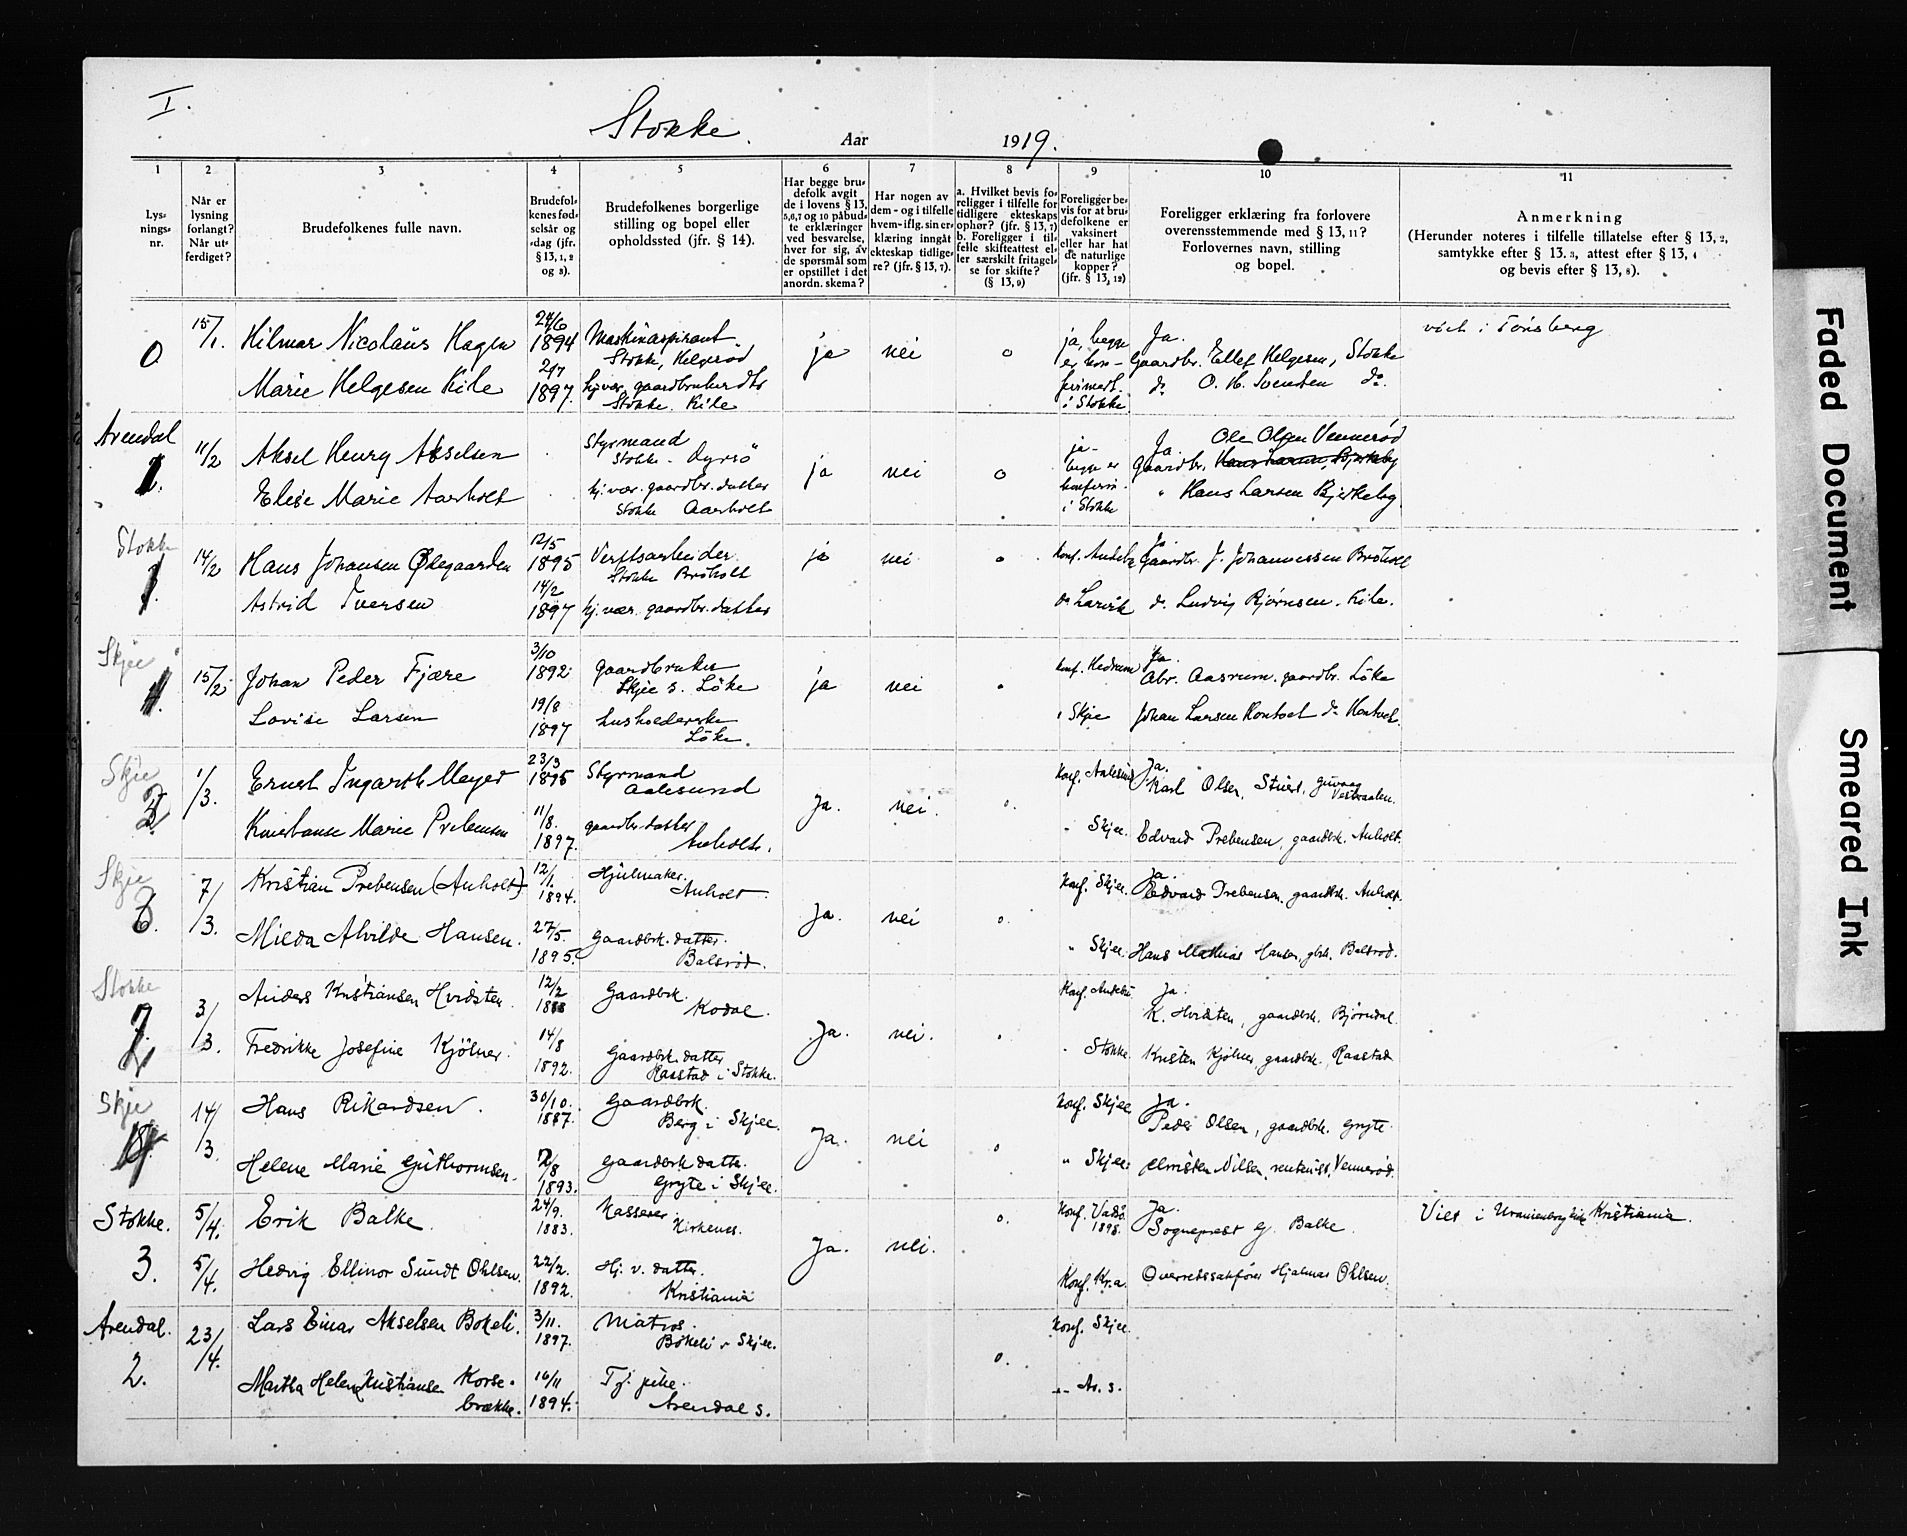 I.
Stokke. Aar 1919.
1 2 3 4 5 6 7 8 9 10 11
Lysningsnr.
Når er lysning forlangt? Når utferdiget?
Brudefolkenes fulle navn.
Brudefolkenes fødselsår og -dag (jfr. § 13, 1, 2 og 3).
Brudefolkenes borgerlige stilling og bopel eller opholdssted (jfr. § 14).
Har begge brudefolk avgit de i lovens § 13, 5,6,7 og 10 påbudte erklæringer ved besvarelse, hver for sig, av de spørsmål som er opstillet i det anordn. skema?
Har nogen av dem - og i tilfelle hvem - iflg. sin erklæring inngåt ekteskap tidligere? (jfr. § 13, 7).
a. Hvilket bevis foreligger i tilfelle for tidligere ekteskaps ophør? (jfr. § 13, 7)
b. Foreligger i tilfelle skifteattest eller særskilt fritagelse for skifte? (§ 13, 9)
Foreligger bevis for at brudefolkene er vaksinert eller har hat de naturlige kopper? (jfr. § 13, 12)
Foreligger erklæring fra forlovere overensstemmende med § 13, 11? Forlovernes navn, stilling og bopel.
Anmerkning
(Herunder noteres i tilfelle tillatelse efter § 13, 2, samtykke efter § 13. 3, attest efter § 13, 4 og bevis efter § 13, 8).
0 15/1. Hilmar Nicolaus Hagen 24/6 1894 Maskinaspirant Stokke, Helgerød ja nei 0 ja, begge er konfirmert i Stokke Ja. Gaardbr. Ellef Helgesen, Stokke viet i Tønsberg
Marie Helgesen Kile 2/7 1897. hj.vær. gaardbrukerdtr Stokke Kile do O. H. Svendsen do.
Arendal 1. 11/2 Aksel Henry Akselsen Styrmand Stokke - Dyrsö ja nei 0 ja - begge er konfirm. i Stokke Ja. Gaardbr. Ole Olsen Vennerød
Elise Marie Aarholt hj.vær. gaardbr.datter Stokke Aarholt " Hans Larsen Bjerkeby
Stokke 1. 14/2 Hans Johansen Ødegaarden 12/5 1895 Verftsarbeider Stokke Brøholt ja nei 0 konf. Andebu Ja. Gaardbr. J. Johannessen Brøholt
Astrid Iversen 14/2 1897 hj.vær. gaardbr.datter do Larvik do. Ludvig Bjørnsen. Kile.
Skjee 15/2 Johan Peder Fjære 3/10 1892 gaardbruker Skjee s. Löke ja nei konf. Hedrum Ja. Abr. Aasrum. gaardbr. Löke
Lovise Larsen 19/8 1897 husholderske Löke. " Skjee Johan Larsen Hontvet do Hontvet.
Skjee 1/3. Ernst Ingarth Meyer 23/3 1895 Styrmand Aalesund Ja. nei. 0. Konf. Aalesund Ja. Karl Olsen, Stuert,
Marie Prebensen 11/8. 1897. gaardbr.datter Anholt. " Skjee. Edvard Prebensen, gaardbk. Anholt.
Skjee 6. 7/3. Kristian Prebensen (Anholt) 12/1. 1894. Hjulmaker. Anholt Ja. nei 0. Konf. Skjee. Ja. Edvard Prebensen, gaardbk. Anholt.
Milda Alvilde Hansen. 27/5. 1895. Gaardbk. datter. Balsrød. " Skjee. Hans Mathias Hansen, gbk. Balsrød.
Stokke 2 3/3. Anders Kristiansen Hvidsten. 12/2 Gaardbk. Kodal. Ja. nei. Konf. Andebu Ja. K. Hvidsten, gaardbk. Bjørndal.
Fredrikke Josefine Kjölner. 14/8 1892. Gaardbk. datter Raastad i Stokke. " Stokke. Kristen Kjölner, gaardbk., Raastad
Skjee 14/3. Hans Rikardsen. 30/10. 1887. Gaardbk. Berg i Skjee. Ja. nei 0 Konf. Skjee. Ja. Peder Olsen, gaardbk. Gryte
Helene Marie Guthormsen. 2/8 1893. Gaardbk datter. Gryte i Skjee. " Skjee. Nilsen, rentenist, Vennerød.
Stokke. 3. 5/4. Erik Balke. 24/9. 1883. Kasserer. Kirkenes. Ja. nei. 0. Konf. Vadsø. 1898. Ja. Sogneprest G. Balke. Viet i Uranienborg kirke Kristiania.
5/4. Hedvig Ellinor Sundt Ohlsen. 22/2. 1892. Hj. v. datter. Kristiania Konf. Kr.a. Overretssakfører Hjalmar Ohlsen.
Arendal. 2. 23/4. Lars Einar Akselsen Bøkeli. 3/11. 1897. Matros. Bökeli i Skjee. 0. Konf. Skjee.
Martha Helene Kristiansen Korsebrække. 16/11 1894. Tj. pike. Arendal s. " Ar. s.
Faded Document
Smeared Ink